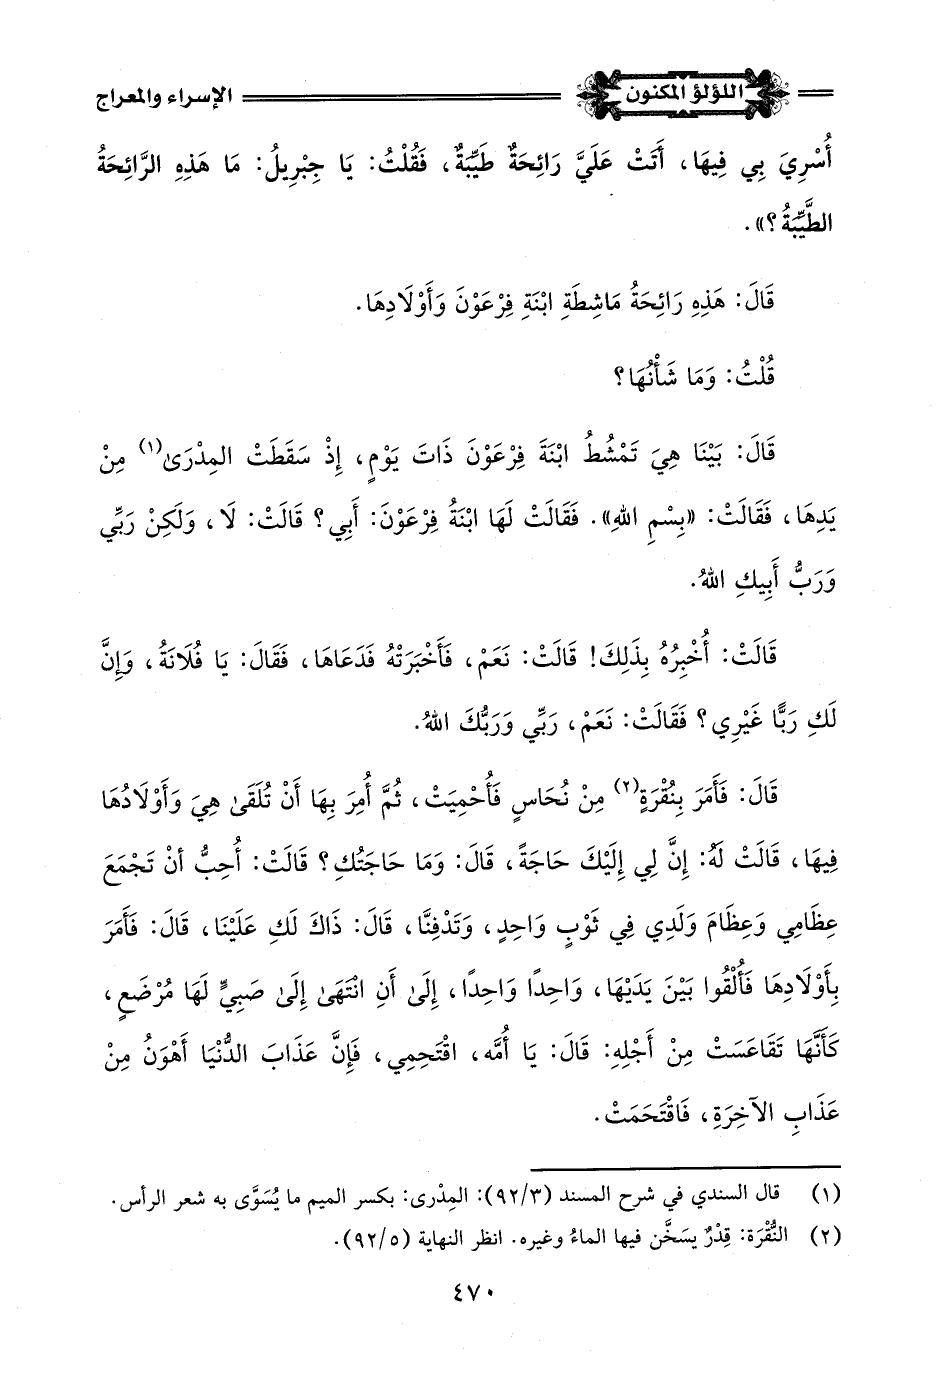 اللؤلؤ المكنون
الإسراء والمعراج
أُسْرِيَ بِي فِيهَا، أَتَتْ عَلَيَّ رَائِحَةٌ طَيِّبَةٌ، فَقُلْتُ: يَا جِبْرِيلُ: مَا هَذِهِ الرَّائِحَةُ
الطَّيِّبَةُ؟».
قَالَ: هَذِهِ رَائِحَةُ مَاشِطَةِ ابْنَةِ فِرْعَوْنَ وَأَوْلَادِهَا.
قُلْتُ: وَمَا شَأْنُهَا؟
قَالَ: بَيْنَا هِيَ تَمْشُطُ ابْنَةَ فِرْعَوْنَ ذَاتَ يَوْمٍ، إِذْ سَقَطَتْ المِدْرَىٰ(١) مِنْ
يَدِهَا، فَقَالَتْ: «بِسْمِ اللهِ». فَقَالَتْ لَهَا ابْنَةُ فِرْعَوْنَ: أَبِي؟ قَالَتْ: لَا، وَلَكِنْ رَبِّي
وَرَبُّ أَبِيكِ اللهُ.
قَالَتْ: أُخْبِرُهُ بِذَلِكَ! قَالَتْ: نَعَمْ، فَأَخْبَرَتْهُ فَدَعَاهَا، فَقَالَ: يَا فُلَانَةُ، وَإِنَّ
لَكِ رَبًّا غَيْرِي؟ فَقَالَتْ: نَعَمْ، رَبِّي وَرَبُّكَ اللهُ.
قَالَ: فَأَمَرَ بِنُقْرَةٍ(٢) مِنْ نُحَاسٍ فَأُحْمِيَتْ، ثُمَّ أُمِرَ بِهَا أَنْ تُلَقَىٰ هِيَ وَأَوْلَادُهَا
فِيهَا، قَالَتْ لَهُ: إِنَّ لِي إِلَيْكَ حَاجَةً، قَالَ: وَمَا حَاجَتُكِ؟ قَالَتْ: أُحِبُّ أنْ تَجْمَعَ
عِظَامِي وَعِظَامَ وَلَدِي فِي ثَوْبٍ وَاحِدٍ، وَتَدْفِنَّا، قَالَ: ذَاكَ لَكِ عَلَيْنَا، قَالَ: فَأَمَرَ
بِأَوْلَادِهَا فَأُلْقُوا بَيْنَ يَدَيْهَا، وَاحِدًا وَاحِدًا، إِلَىٰ أَنِ انْتَهَىٰ إِلَىٰ صَبِيٍّ لَهَا مُرْضَعٍ،
كَأَنَّهَا تَقَاعَسَتْ مِنْ أَجْلِهِ: قَالَ: يَا أُمَّه، اقْتَحِمِي، فَإِنَّ عَذَابَ الدُّنْيَا أَهْوَنُ مِنْ
عَذَابِ الآخِرَةِ، فَاقْتَحَمَتْ.
(١) قال السندي في شرح المسند (٩٢/٣): المِدْرى: بكسر الميم ما يُسَوَّى به شعر الرأس.
(٢) النُّقْرَة: قِدْرٌ يسَخَّن فيها الماءُ وغيره. انظر النهاية (٩٢/٥).
٤٧٠